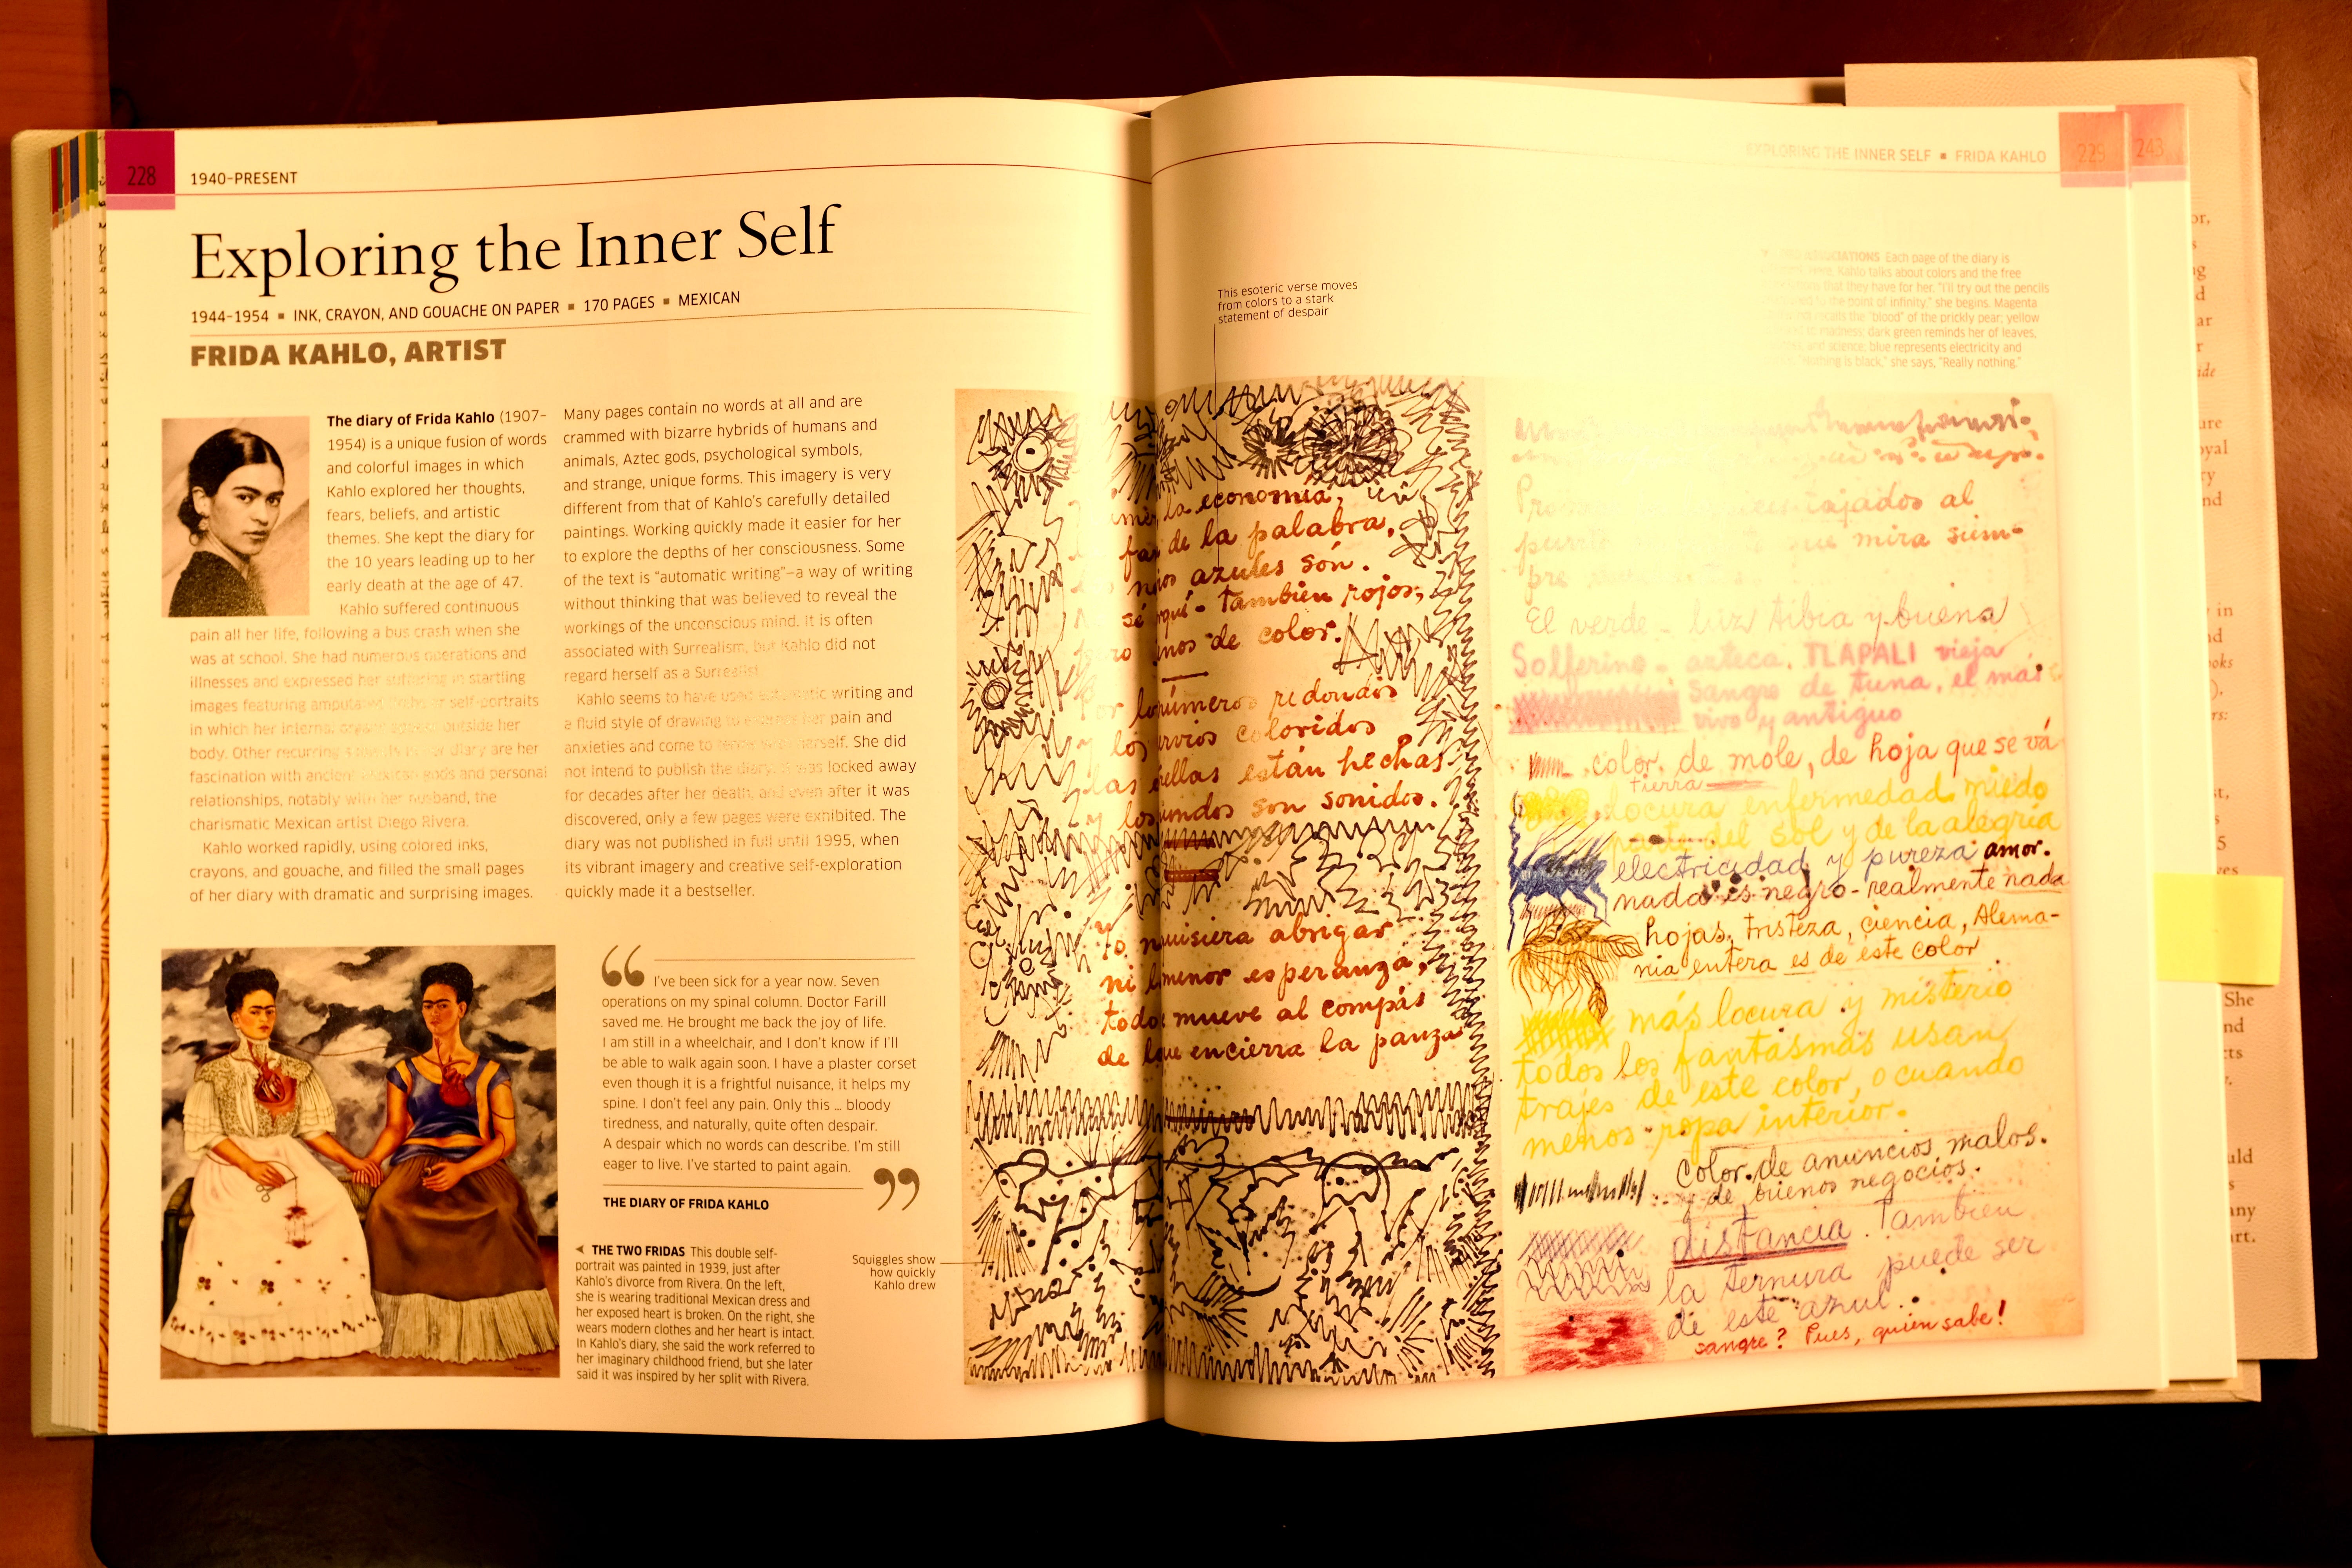 228
1940–PRESENT
Exploring the Inner Self
1944–1954 ▪ INK, CRAYON, AND GOUACHE ON PAPER ▪ 170 PAGES ▪ MEXICAN
FRIDA KAHLO, ARTIST
The diary of Frida Kahlo (1907–
1954) is a unique fusion of words
and colorful images in which
Kahlo explored her thoughts,
fears, beliefs, and artistic
themes. She kept the diary for
the 10 years leading up to her
early death at the age of 47.
Kahlo suffered continuous
pain all her life, following a bus crash when she
was at school. She had numerous operations and
illnesses and expressed her suffering in startling
images featuring self-portraits
in which her internal organs outside her
body. Other recurring diary are her
fascination with ancient Mexican gods and personal
relationships, notably with her husband, the
charismatic Mexican artist Diego Rivera.
Kahlo worked rapidly, using colored inks,
crayons, and gouache, and filled the small pages
of her diary with dramatic and surprising images.
Many pages contain no words at all and are
crammed with bizarre hybrids of humans and
animals, Aztec gods, psychological symbols,
and strange, unique forms. This imagery is very
different from that of Kahlo's carefully detailed
paintings. Working quickly made it easier for her
to explore the depths of her consciousness. Some
of the text is “automatic writing”—a way of writing
without thinking that was believed to reveal the
workings of the unconscious mind. It is often
associated with Surrealism, but Kahlo did not
regard herself as a Surrealist.
Kahlo seems to have used automatic writing and
a fluid style of drawing to express her pain and
anxieties and come to herself. She did
not intend to publish the diary. It was locked away
for decades after her death, and even after it was
discovered, only a few pages were exhibited. The
diary was not published in full until 1995, when
its vibrant imagery and creative self-exploration
quickly made it a bestseller.
“ I've been sick for a year now. Seven
operations on my spinal column. Doctor Farill
saved me. He brought me back the joy of life.
I am still in a wheelchair, and I don't know if I'll
be able to walk again soon. I have a plaster corset
even though it is a frightful nuisance, it helps my
spine. I don't feel any pain. Only this ... bloody
tiredness, and naturally, quite often despair.
A despair which no words can describe. I'm still
eager to live. I've started to paint again. ”
THE DIARY OF FRIDA KAHLO
◄ THE TWO FRIDAS This double self-
portrait was painted in 1939, just after
Kahlo's divorce from Rivera. On the left,
she is wearing traditional Mexican dress and
her exposed heart is broken. On the right, she
wears modern clothes and her heart is intact.
In Kahlo's diary, she said the work referred to
her imaginary childhood friend, but she later
said it was inspired by her split with Rivera.
Squiggles show
how quickly
Kahlo drew
EXPLORING THE INNER SELF ▪ FRIDA KAHLO
229
243
This esoteric verse moves
from colors to a stark
statement of despair
ASSOCIATIONS Each page of the diary is
Kahlo talks about colors and the free
that they have for her; “I'll try out the pencils
to the point of infinity,” she begins. Magenta
recalls the “blood” of the prickly pear; yellow
madness; dark green reminds her of leaves,
and science; blue represents electricity and
“Nothing is black,” she says, “Really nothing.”
la economía,
de la palabra,
azules són.
sé También rojos,
de color.
números redondos
coloridos
las están hechas
y los son sonidos.
quisiera abrigar
ni menor esperanza,
todo mueve al compás
de encierra la panza
tajados al
que mira siem-
pre
El verde - luz tibia y buena
Solferino - azteca. TLAPALI vieja
sangre de tuna, el más
vivo y antiguo
color de mole, de hoja que se vá
tierra
locura enfermedad miedo
parte del sol y de la alegría
electricidad y pureza amor.
nada es negro - realmente nada
hojas, tristeza, ciencia, Alema-
nia entera es de este color
más locura y misterio
todos los fantasmas usan
trajes de este color, o cuando
menos ropa interior.
color de anuncios malos.
y de buenos negocios.
distancia. Tambien
la ternura puede ser
de este azul.
sangre? Pues, quien sabe!